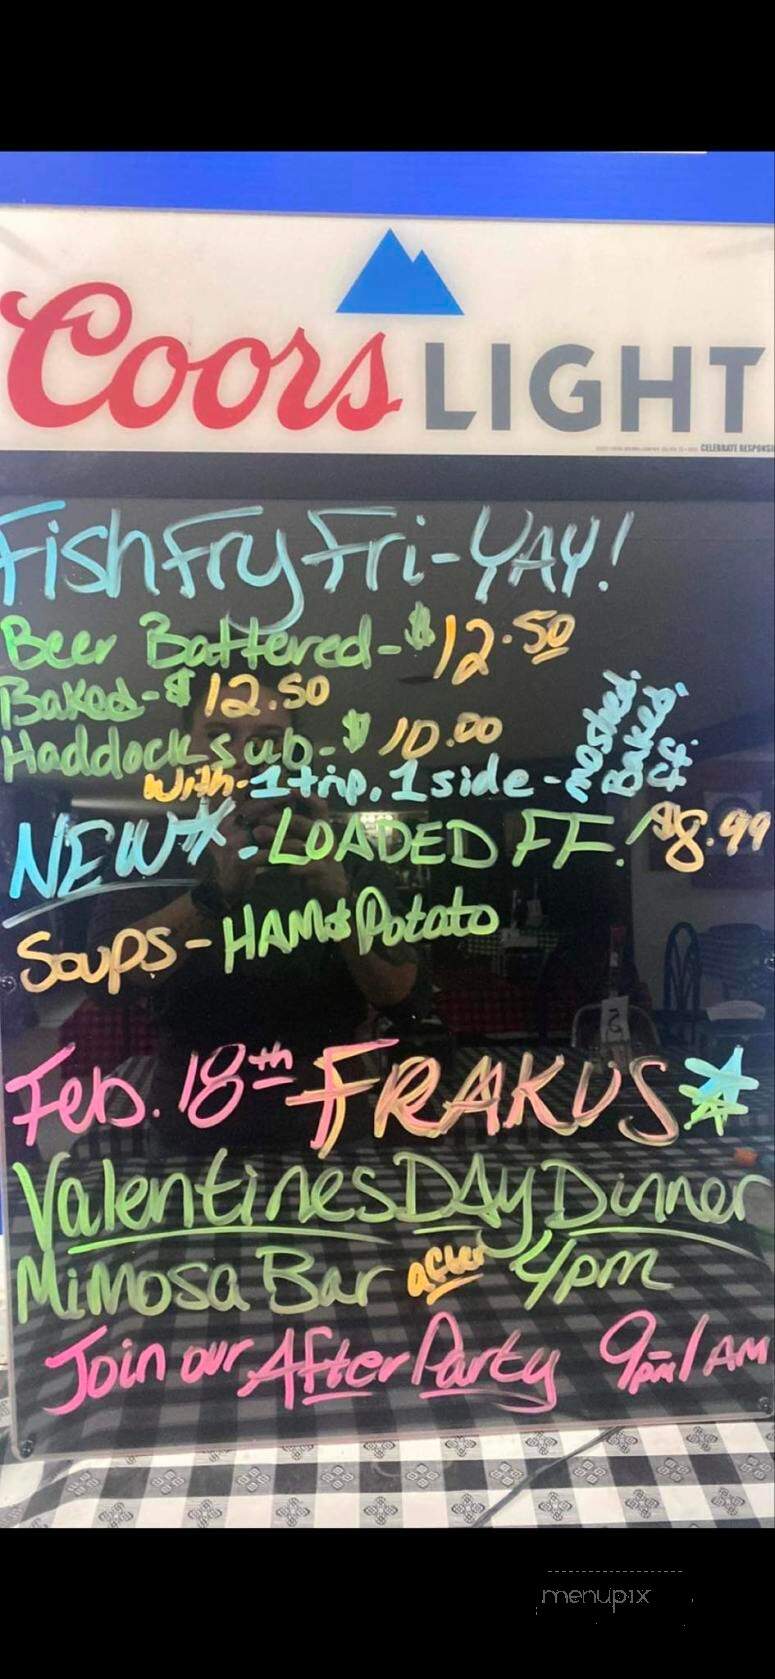 Coors LIGHT
CELEBRATE RESPONSI
Fish Fry Fri-YAY!
Beer Battered-$12.50
Baked-$12.50
Haddock sub-$10.00
With-1 trip, 1 side-
mashed.
Baked.
F.F.
NEW*-LOADED FF! $8.99
Soups-HAM & Potato
Feb. 18th FRAKUS
Valentines DAy Dinner
Mimosa Bar after 4pm
Join our After Party 9pm-1AM
menupix